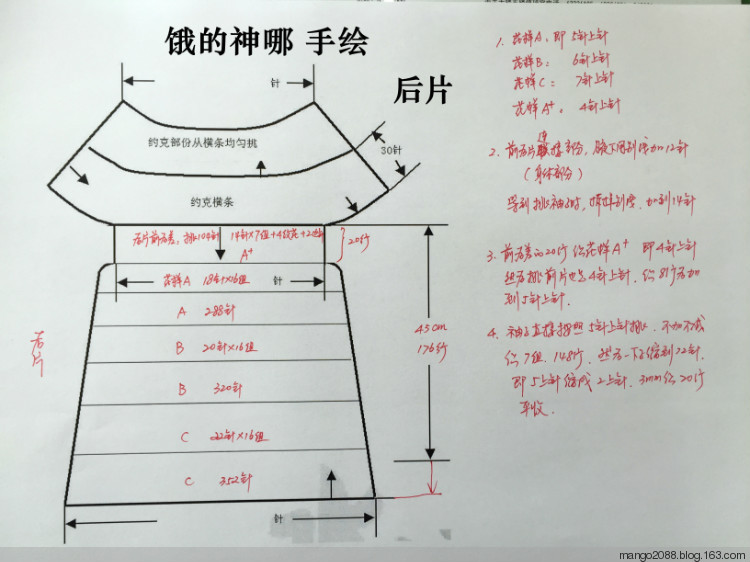 饿的神哪 手绘
后片
针
约克部份从横条均匀挑
30针
约克横条
后片前后差，挑104针 14针×7组+4纹花+2边针
A+
20行
花样A 18针×16组
针
A 288针
B 20针×16组
B 320针
C 22针×16组
C 352针
针
43cm
176行
后片
1. 花样A，即 5针上针
花样B： 6针上针
花样C： 7针上针
花样A+： 4针上针
2. 前后片连接部份，腋下同别处加12针
（身体部份）
3. 前后差的20行织花样A+ 即4针上针
然后挑前片也是4针上针，织8行后加
到5针上针.
4. 袖子直接按照 5针上针挑，不加不减
织7组，148行，然后一下子缩到22针，
即5上针缩成2上针，3mm织20行
平收.
mango2088.blog.163.com